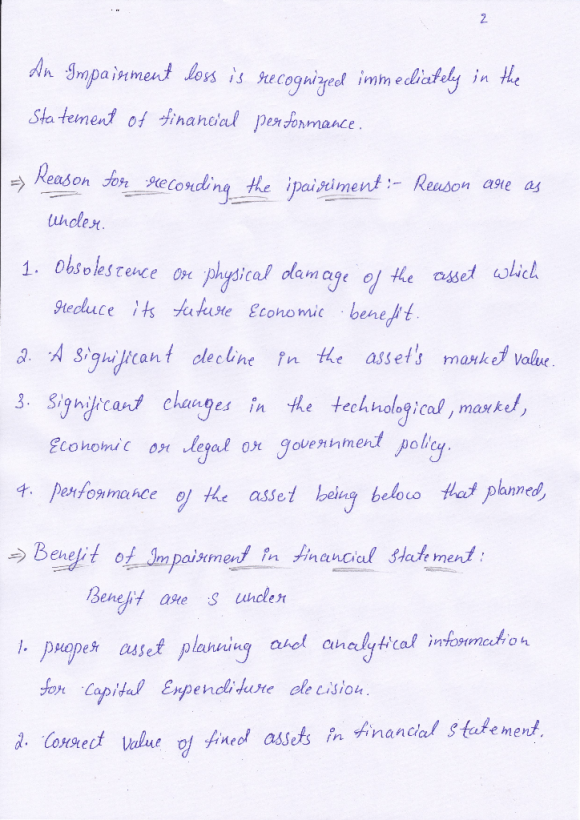 2
An Impairment loss is recognized immediately in the
Statement of financial performance.
⇒ Reason for recording the ipairiment:- Reason are as
under.
1. Obsolescence or physical damage of the asset which
reduce its future Economic benefit.
2. A Significant decline in the asset's market value.
3. Significant changes in the technological, market,
Economic or legal or government policy.
4. performance of the asset being below that planned,
⇒ Benefit of Impairment in financial Statement:
Benefit are s under
1. proper asset planning and analytical information
for Capital Expenditure decision.
2. Correct value of fixed assets in financial statement.